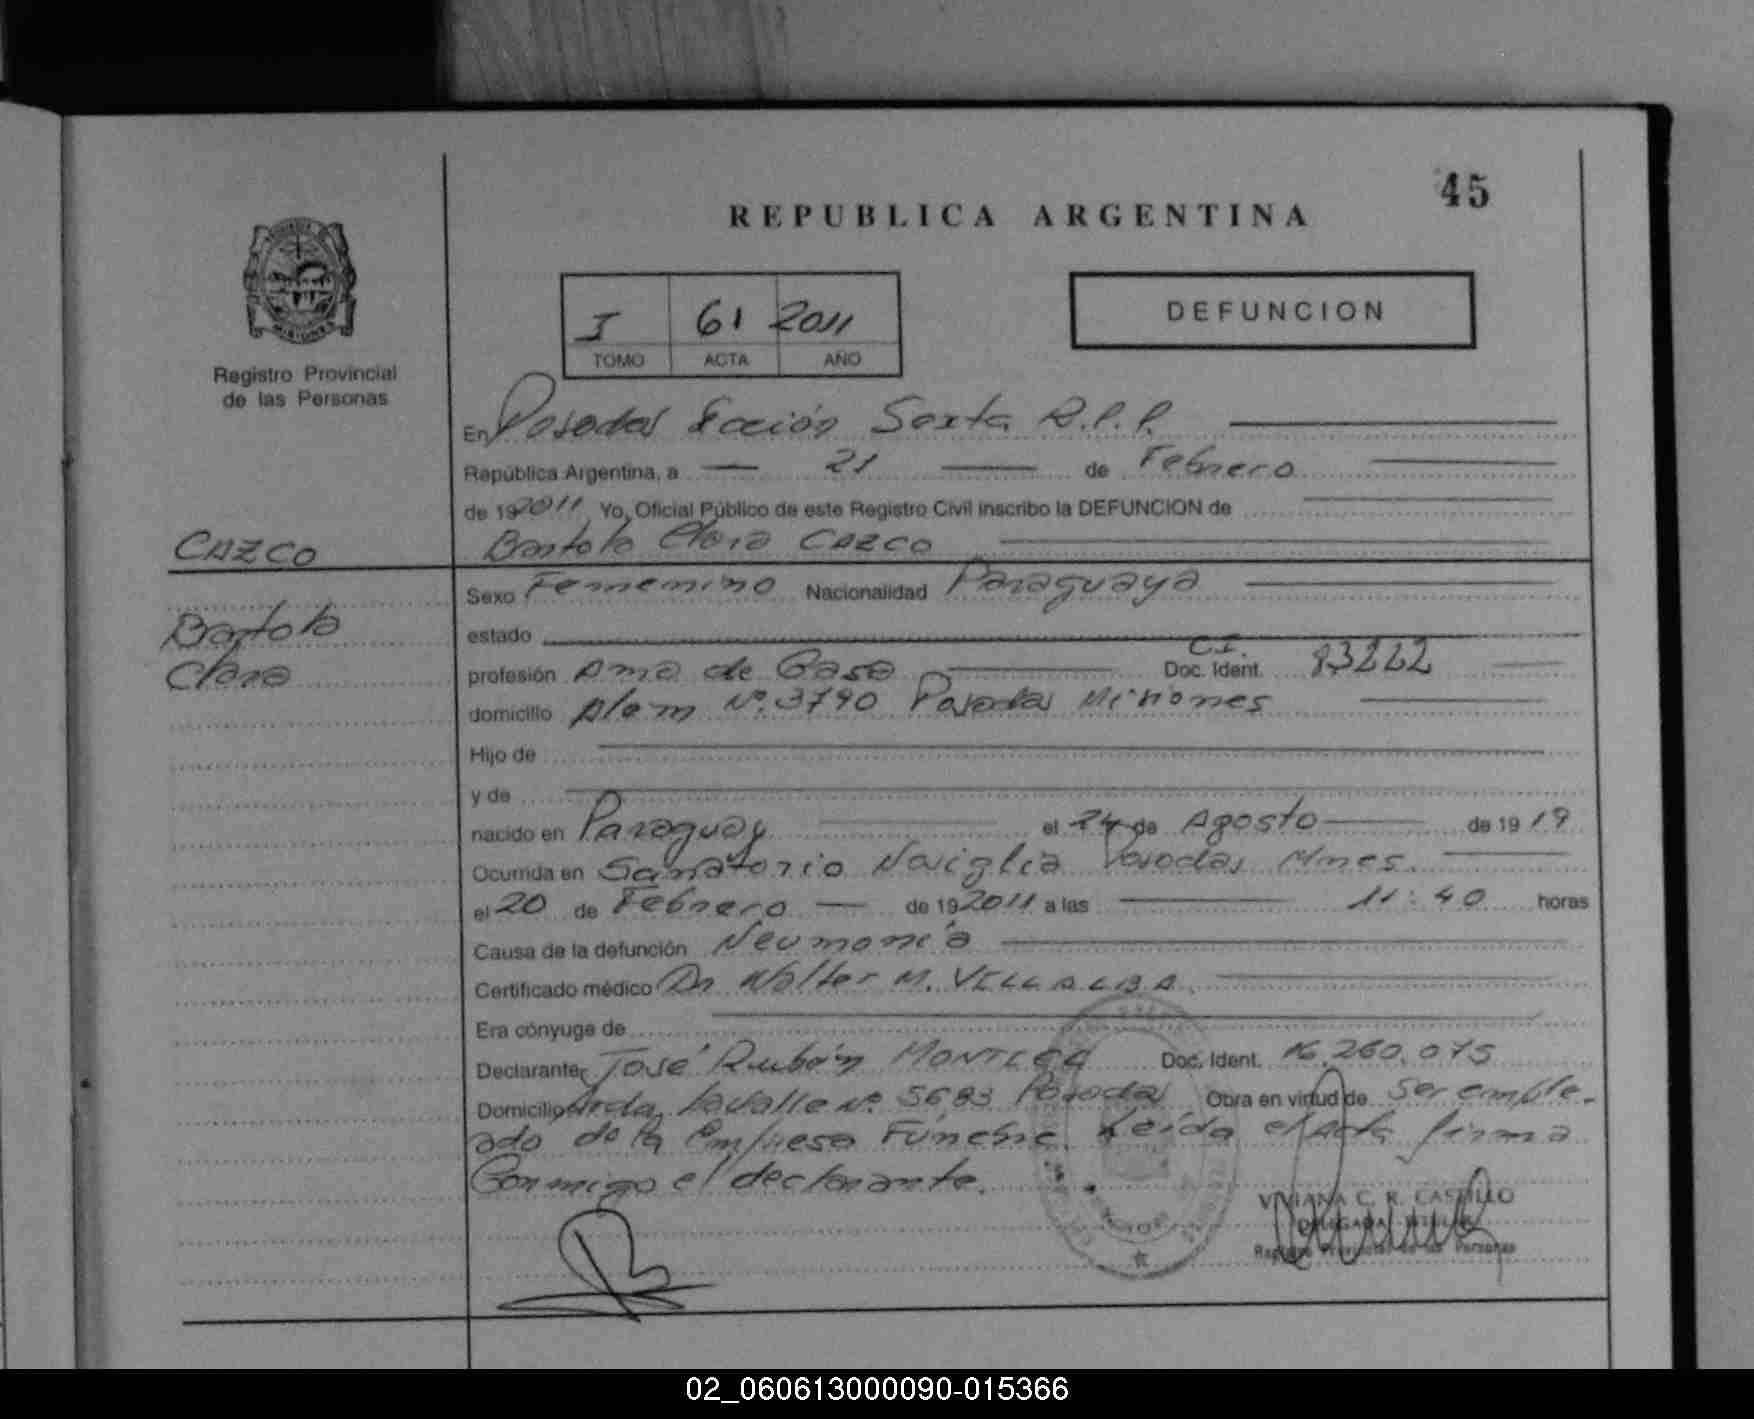 45
REPUBLICA ARGENTINA
MISIONES
Registro Provincial
de las Personas
I 61 2011
TOMO ACTA AÑO
DEFUNCION
En Posadas Sección Sexta R.P.P.
República Argentina, a 21 de Febrero
de 19 2011 Yo, Oficial Público de este Registro Civil inscribo la DEFUNCION de
CAZCO
Bartola Clara CAZCO
Sexo Femenino Nacionalidad Paraguaya
Bartola
estado
Clara
profesión Ama de Casa Doc. Ident. C.I. 83222
domicilio Alem Nº 3790 Posadas Misiones
Hijo de
y de
nacido en Paraguay el 24 de Agosto de 19 19
Ocurrida en Sanatorio Nosiglia Posadas Mnes.
el 20 de Febrero de 19 2011 a las 11:40 horas
Causa de la defunción Neumonía
Certificado médico Dr Walter M. VILLALBA.
Era cónyuge de
Declarante José Rubén Doc. Ident. 16.260.075
Domicilio Avda. Lavalle Nº 5683 Posadas Obra en virtud de ser emple-
ado de la Empresa Fúnebre. Leída el Acta firma
Conmigo el declarante.
VIVIANA C. R. CASTILLO
DELEGADA TITULAR
Registro Provincial de las Personas
02_060613000090-015366